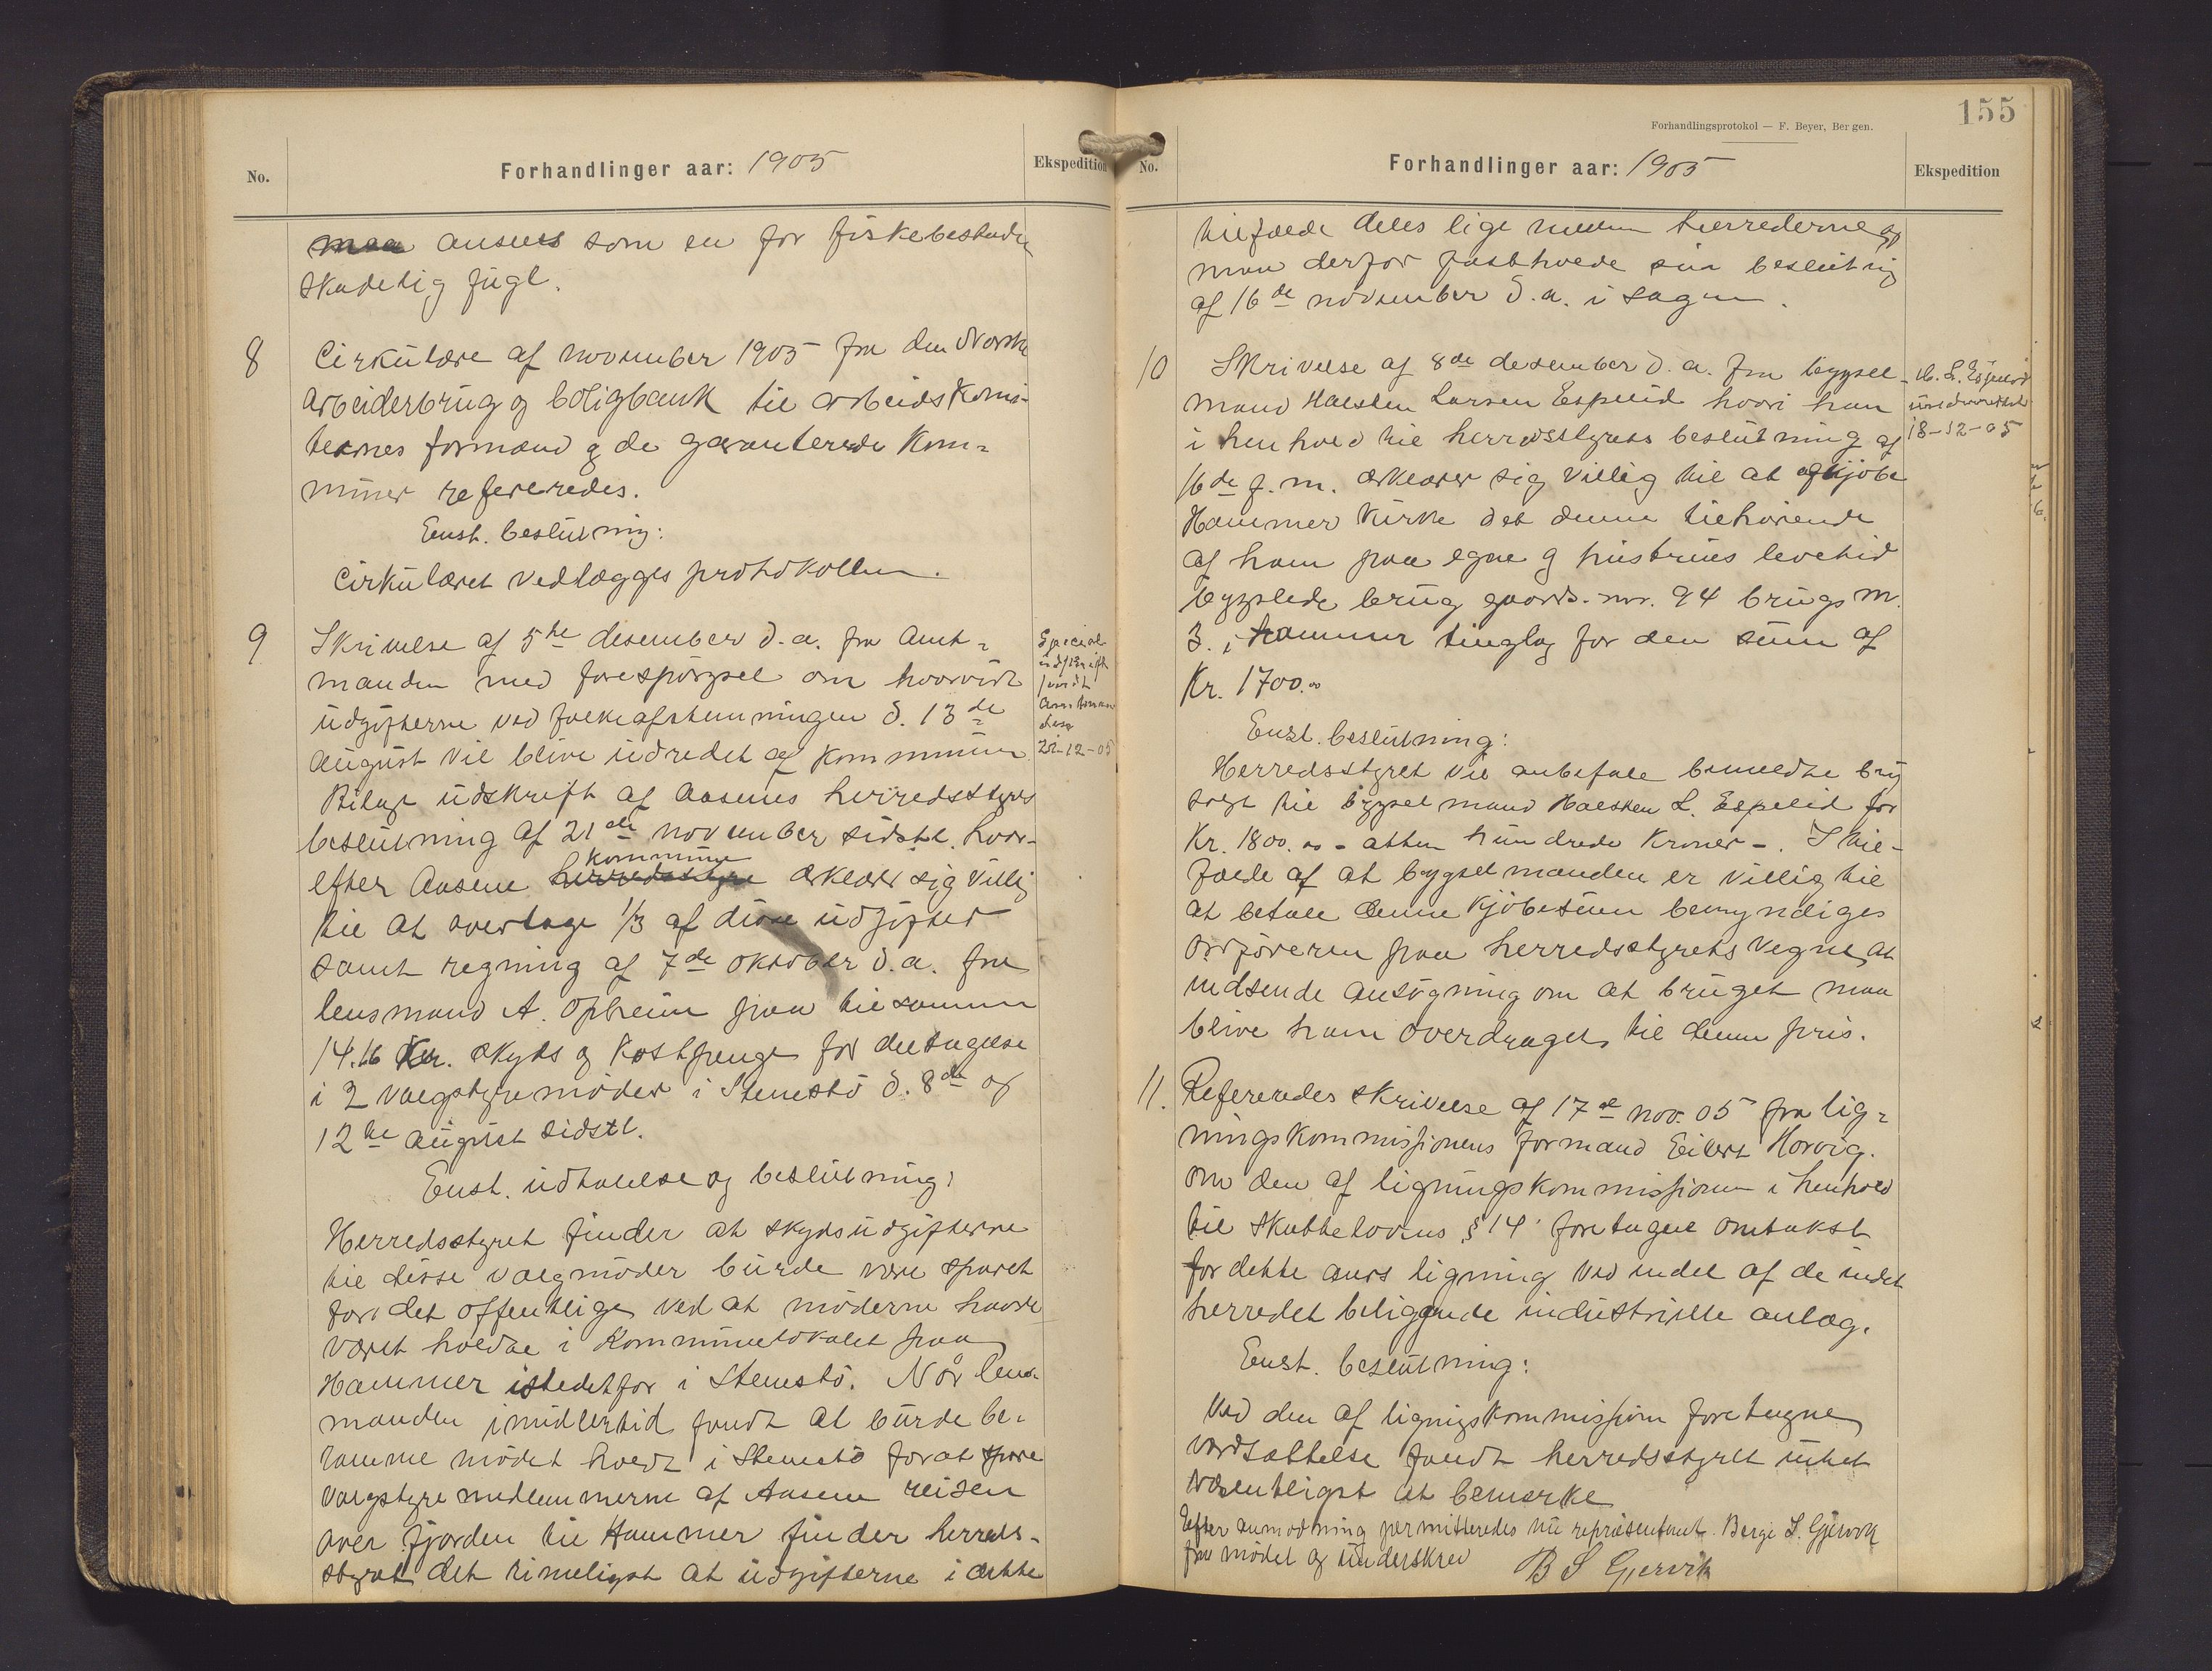 No.
Forhandlinger aar: 1905
Ekspedition
maa ansees som en for fiskebestaden
skadelig fugl.
8
Cirkulære af november 1905 fra den Norske
arbeiderbrug og boligbank til arbeidskomi-
teernes formænd og de garanterede kom-
muner refereredes.
Enst. beslutning:
Cirkulæret vedlægges protokollen.
9
Skrivelse af 5te desember d.a. fra Amt-
manden med forespørgsel om hvorvidt
udgifterne ved folkeafstemningen d. 13de
august vil blive udredet af kommunen.
Bilagt udskrift af Aasenes herredsstyres
beslutning af 21de november sidstl. hvor-
efter Aasene herredsstyre kommune erklærer sig villig
til at overtage 1/3 af disse udgifter
samt regning af 7de oktober d.a. fra
lensmand A. Opheim paa tilsammen
14.16 Kr. skyds og kostpenge for deltagelse
i 2 valgstyremøder i Stenestø d. 8de og
12te august sidstl.
Special
udskrift
sendt
Amtman
den
21-12-05
Enst. udtalelse og beslutning:
Herredsstyret finder at skydsudgifterne
til disse valgmøder burde være sparet
for det offentlige ved at møderne havde
været holdne i Kommunelokalet paa
Hammer istedetfor i Stenestø. Når lens-
manden imidlertid fandt at burde be-
ramme mødet holdt i Stenestø forat spare
valgstyremedlemmerne af Aasene reisen
over fjorden til Hammer finder herreds-
styret det rimeligst at udgifterne i dette
155
Forhandlingsprotokol — F. Beyer, Bergen.
No.
Forhandlinger aar: 1905
Ekspedition
tilfælde deles lige mellem herrederne og
man derfor fastholde sin beslutnig
af 16de november d.a. i sagen.
10
Skrivelse af 8de desember d.a. fra bygsel-
mand Halsten Larsen Espelid hvori han
i henhold til herredsstyrets beslutning af
16de f.m. erklærer sig villig til at afkjøbe
Hammer kirke det denne tilhørende
af ham paa egne og hustrues levetid
bygslede brug gaards.-nr. 94 brugs nr.
3. i Hammer tinglag for den sum af
Kr. 1700.00
H. L. Espelid
underrettet
18-12-05
Enst. beslutning:
Herredsstyret vil anbefale bemeldte brug
solgt til bygselmand Halsten L. Espelid for
Kr. 1800.00 - atten hundrede Kroner -. I til-
fælde af at bygselmanden er villig til
at betale denne kjøbesum bemyndiges
ordføreren paa herredsstyrets vegne at
indsende ansøgning om at bruget maa
blive ham overdraget til denne pris.
11.
Refereredes skrivelse af 17de nov. 05 fra lig-
ningskommissionens formand Eilert Horvig.
om den af ligningskommissionen i henhold
til Skattelovens § 14 foretagne omtakst
for dette aars ligning ved endel af de indet
herredet beliggende industrielle anlæg.
Enst. beslutning:
Ved den af lignigskommission foretagne
værdsættelse fandt herredsstyret intet
væsentligst at bemerke
Efter anmodning permitteredes nu repræsentant. Berge S. Gjervik
fra mødet og underskrev
B S Gjervik